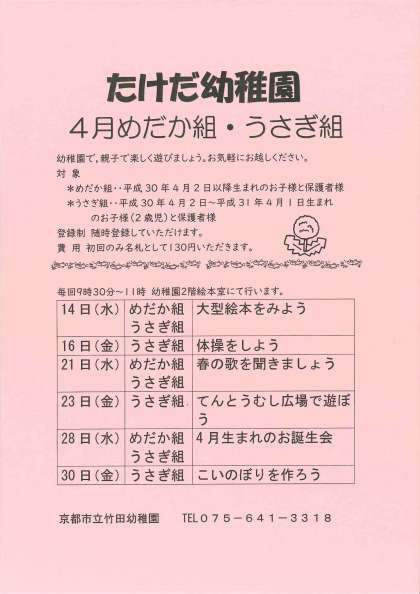 たけだ幼稚園
4月めだか組・うさぎ組
幼稚園で、親子で楽しく遊びましょう。お気軽にお越しください。
対 象
＊めだか組‥平成30年4月2日以降生まれのお子様と保護者様
＊うさぎ組‥平成30年4月2日～平成31年4月1日生まれ
のお子様（2歳児）と保護者様
登録制 随時登録していただけます。
費 用 初回のみ名札として130円いただきます。
毎回9時30分～11時 幼稚園2階絵本室にて行います。
14日（水） めだか組 大型絵本をみよう
うさぎ組
16日（金） うさぎ組 体操をしよう
21日（水） めだか組 春の歌を聞きましょう
うさぎ組
23日（金） うさぎ組 てんとうむし広場で遊ぼ
う
28日（水） めだか組 4月生まれのお誕生会
うさぎ組
30日（金） うさぎ組 こいのぼりを作ろう
京都市立竹田幼稚園 TEL075－641－3318